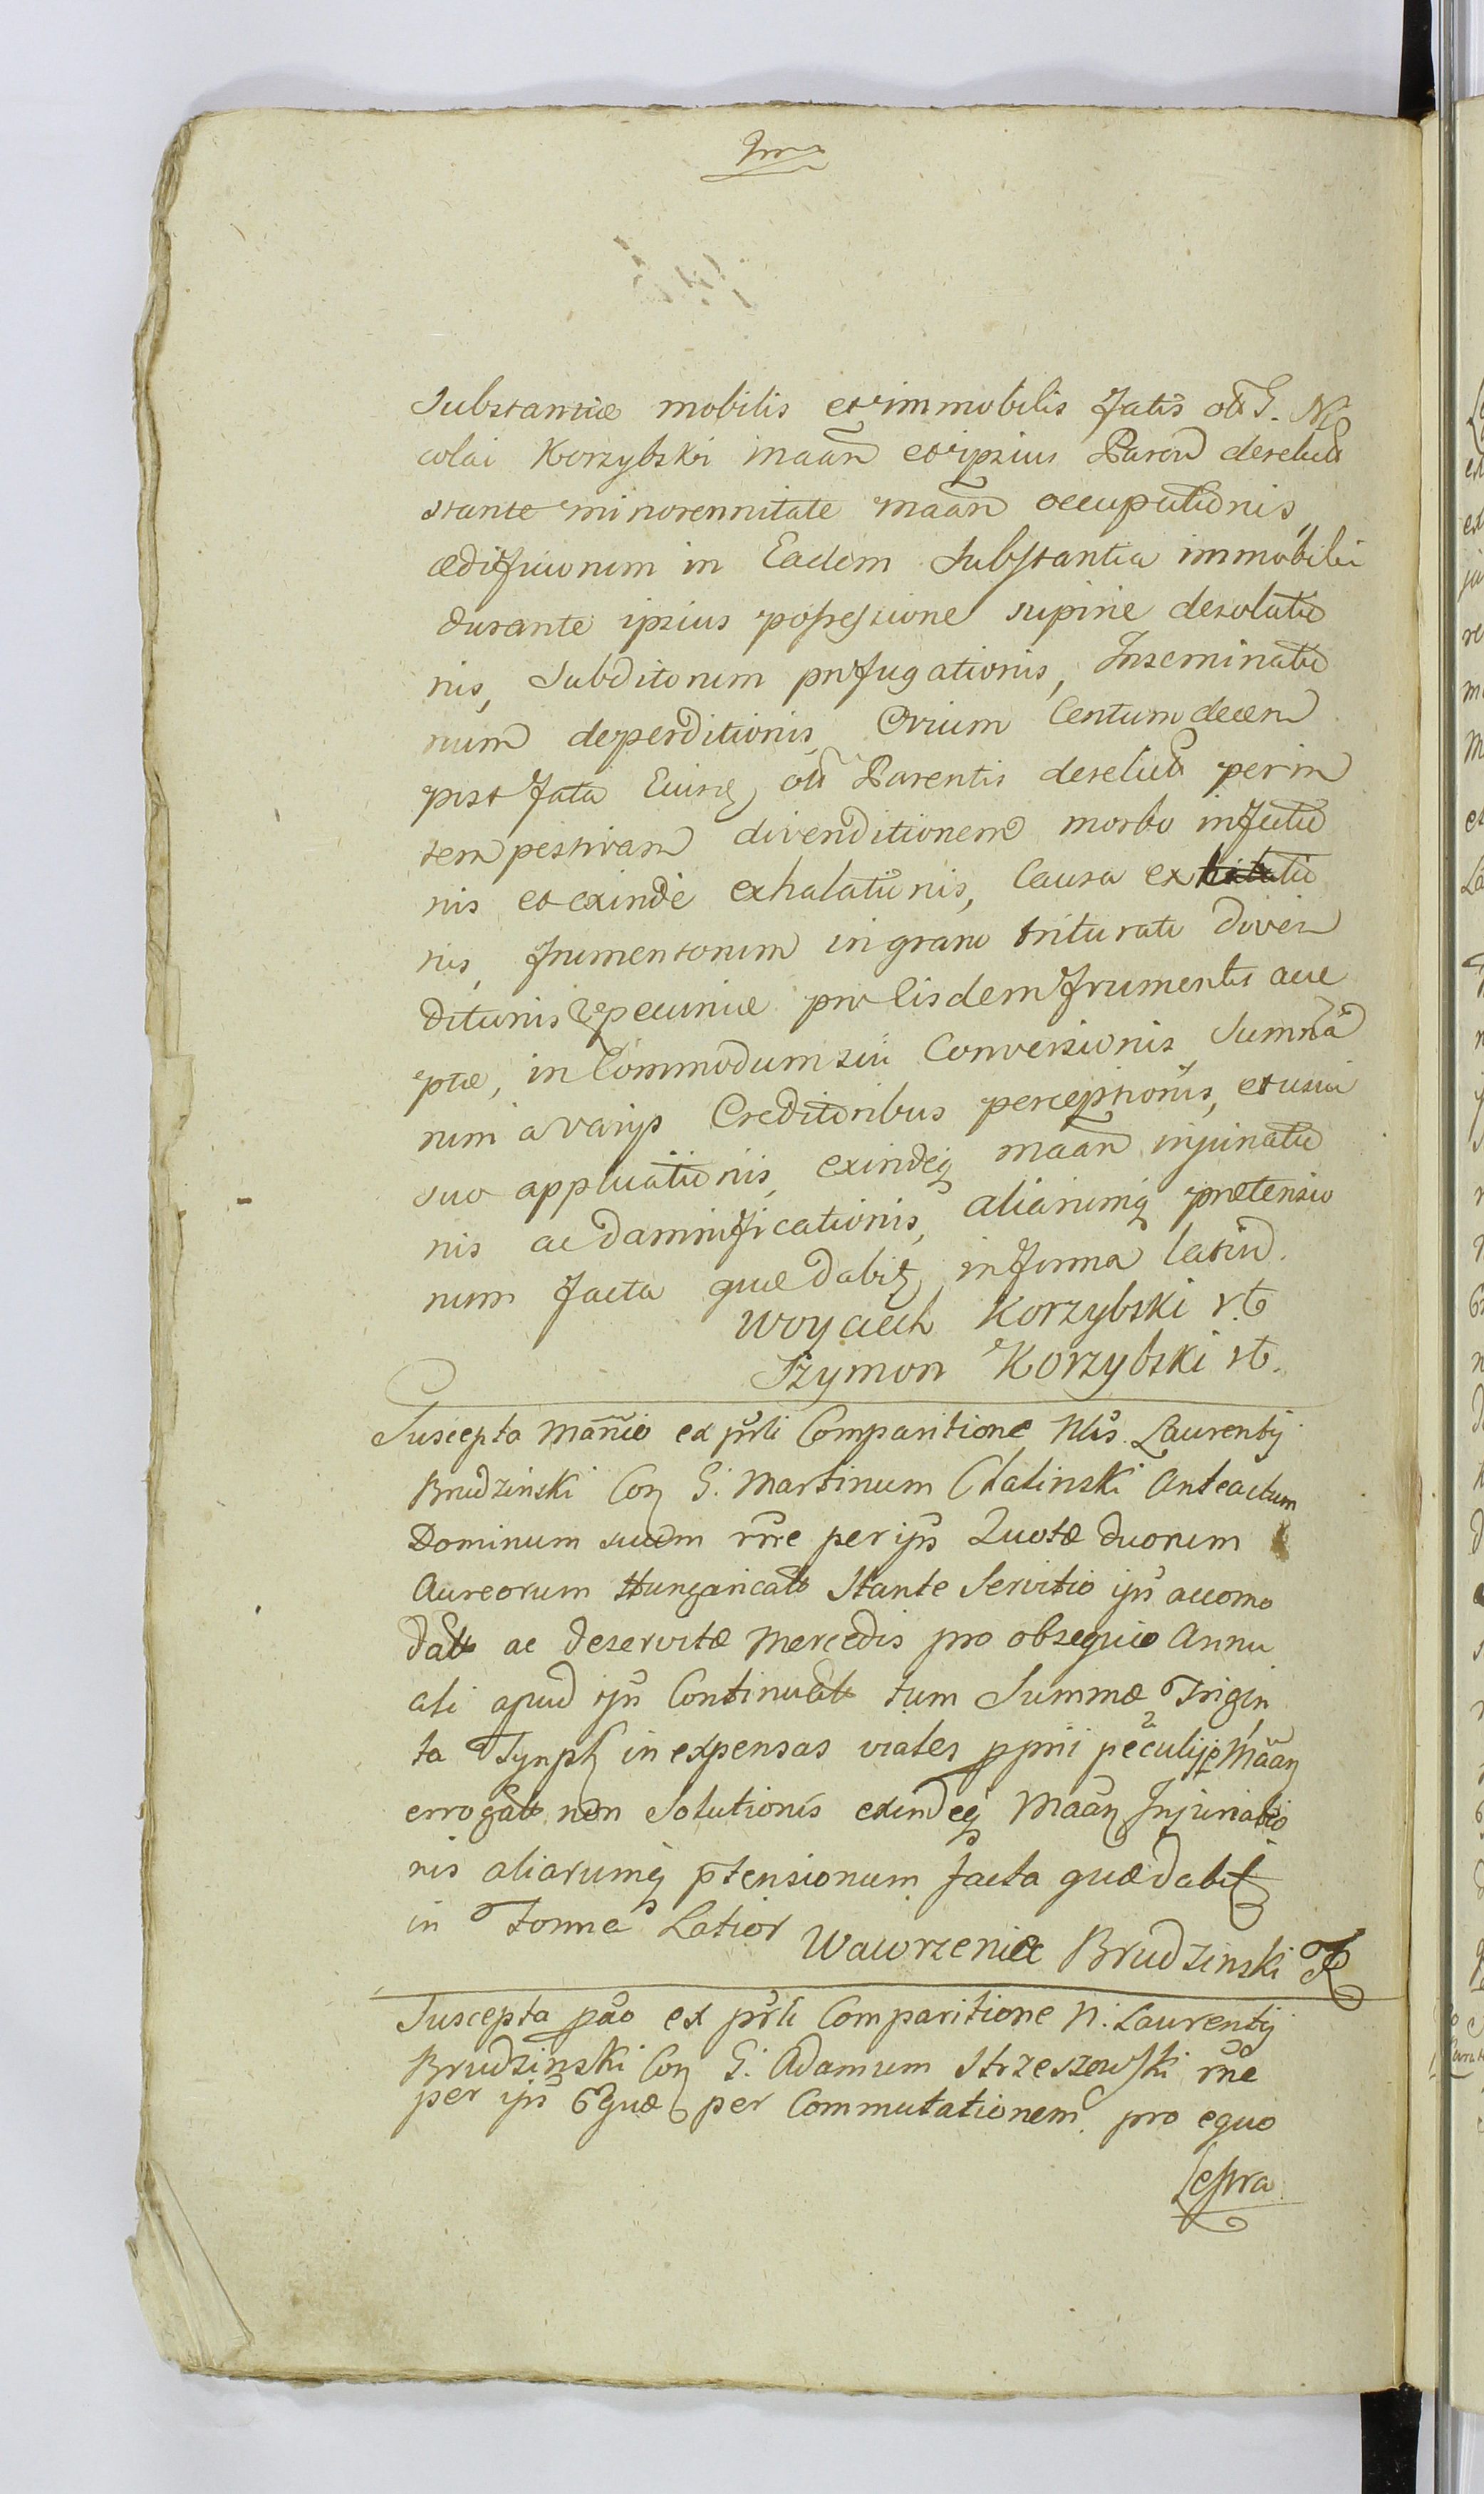 Substantiæ mobilis et immobilis fatis olĩ G. Ni
colai Korzybski maãn et ipsius Paren derelict
stante minorennitate maãn occupationis,
ædificiorum in Eadem Substantia immobili
durante ipsius possessione supine desolatio
nis, Subditorum profugationis, Inseminatio
num deperditionis, Ovium Centum decem
post fata Eiusq olĩ Parentis derelict per in
tempestivam divenditionem morbo infectio
nis et exinde exhalationis, Causa ex
nis, frumentorum in grano triturato diven
ditionis & pecuniæ pro Eisdem frumentis acce
ptæ, in Commodum sui Conversionis Summa
rum a varijs Creditoribus perceptionis, et usui
suo applicationis, exindeq maãn injuriatio
nis ac damnificationis, aliarumq prætensio
num facta quæ dabit in forma latiud.
Woyciech Korzybski
Szymon Korzybski
Suscepta Manĩo ex pñli Comparitione Nlis. Laurentij
Brudzinski Con G. Martinum Chalinski Anteactum
Dominum suum rñe per ips Quotæ duorum
Aureorum Hungarical Stante Servitio ips accomo
dat ac deservitæ Mercedis pro obsequio Annu
ali apud ips Continuat tum Summæ Trigin
ta Tynph in expensas viales pprii peculij p Maãn
errogat non Solutionis exindeq Maãn Injuriatio
nis aliarumq ptensionum facta quæ dabit
in Forma Latior
Wawrzeniec Brudzinski
Suscepta pão ex pñli Comparitione N. Laurentij
Brudzinski Con G. Adamum Strzeszowski rñe
per ips Equæ per Commutationem pro equo